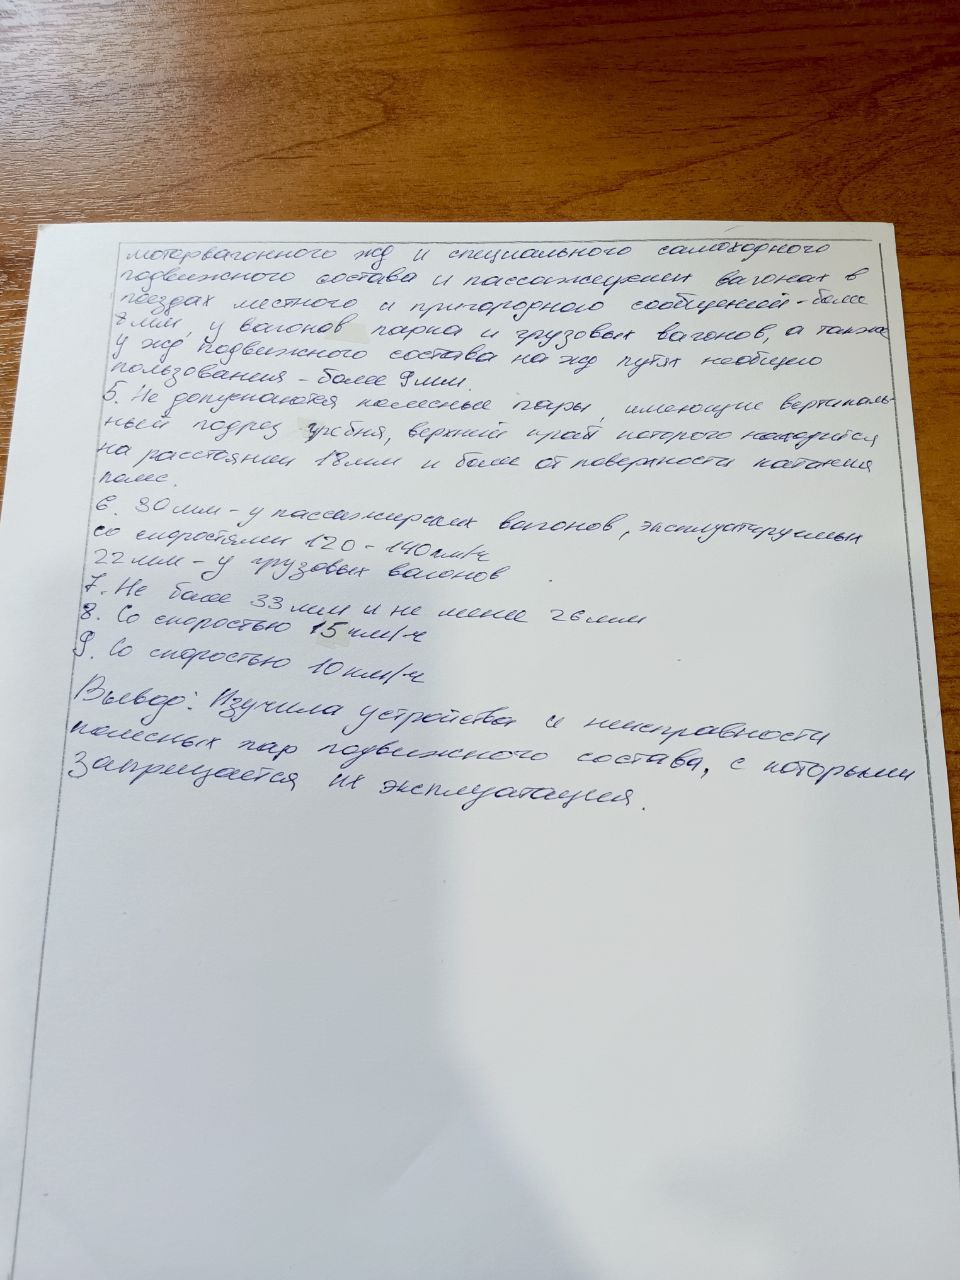 моторвагонного жд и специального самоходного
подвижного состава и пассажирских вагонах в
поездах местного и пригородного сообщений - более
7 мм, у вагонов парка и грузовых вагонов, а также
у жд подвижного состава на жд путях необщего
пользования - более 9 мм.
5. Не допускаются колесные пары, имеющие вертикаль-
ный подрез гребня, верхний край которого находится
на расстоянии 18 мм и более от поверхности катания
колес.
6. 30 мм - у пассажирских вагонов, эксплуатируемых
со скоростями 120 - 140 км/ч
22 мм - у грузовых вагонов
7. Не более 33 мм и не менее 26 мм
8. Со скоростью 15 км/ч
9. Со скоростью 10 км/ч
Вывод: Изучила устройства и неисправности
колесных пар подвижного состава, с которыми
запрещается их эксплуатация.